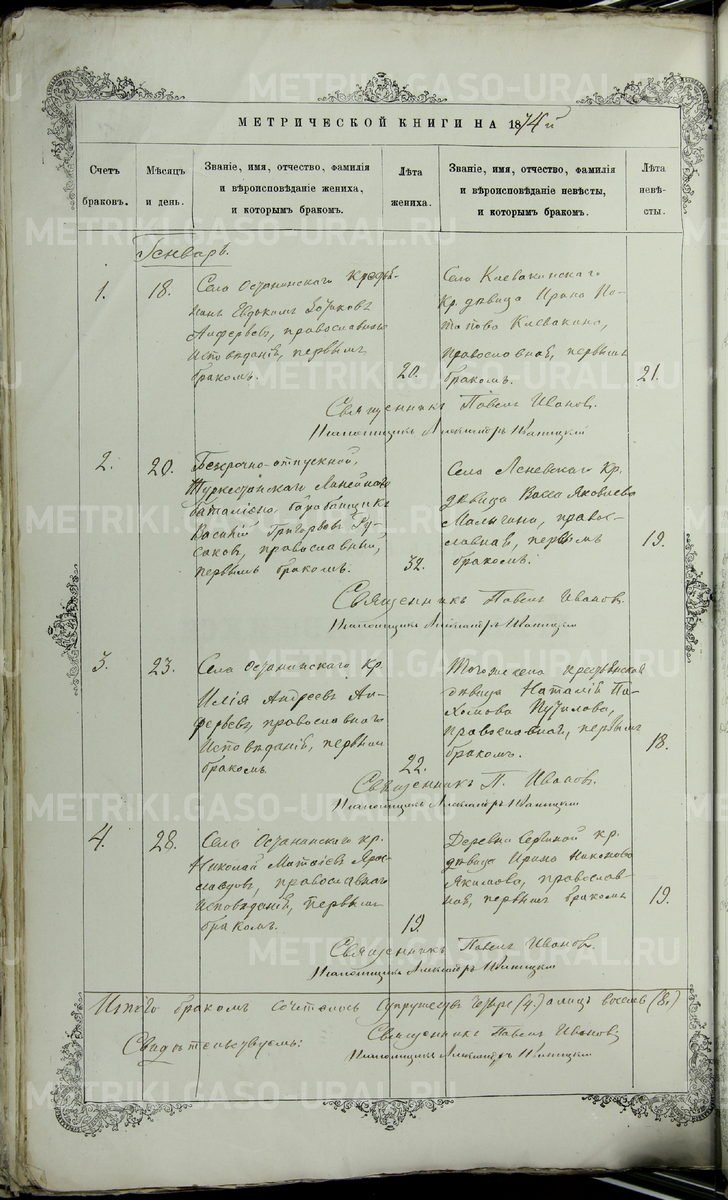 МЕТРИЧЕСКОЙ КНИГИ НА 1874й
Счетъ браковъ.
Мѣсяцъ и день.
Званіе, имя, отчество, фамилія
и вѣроисповѣданіе жениха,
и которымъ бракомъ.
Лѣта жениха.
Званіе, имя, отчество, фамилія
и вѣроисповѣданіе невѣсты,
и которымъ бракомъ.
Лѣта невѣ-сты.
Генварь.
1.
18.
Села Останинскаго кресть-
янъ Евдокимъ
Алферьевъ, православнаго
исповѣданія, первымъ
бракомъ.
20.
Села Клевакинскаго
Кр. дѣвица Ирина По-
тапова Клевакина,
православная, первымъ
бракомъ.
21.
Священникъ Павелъ Ивановъ.
Псаломщикъ Александръ
2.
20.
Безсрочно-отпускной,
Туркестанскаго Линейнаго
баталіона барабанщикъ
Василій Григорьевъ Ру-
саковъ, православный,
первымъ бракомъ.
32.
Села Леневскаго Кр.
дѣвица Васса Яковлева
Малыгина, право-
славная, первымъ
бракомъ.
19.
Священникъ Павелъ Ивановъ.
Псаломщикъ Александръ
3.
23.
Села Останинскаго кр.
Илія Андреевъ Ал-
ферьевъ, православнаго
исповѣданія, первымъ
бракомъ.
22.
Тогоже села крестьянская
дѣвица Наталія Па-
хомова Путилова,
православная, первымъ
бракомъ.
18.
Священникъ П. Ивановъ.
Псаломщикъ Александръ
4.
28.
Села Останинскаго кр.
Николай Матвіевъ Ярос-
лавцовъ, православнаго
исповѣданія, первымъ
бракомъ.
19.
Деревни кр.
дѣвица Ирина Никонова
Якимова, православ-
ная, первымъ бракомъ
19.
Священникъ Павелъ Ивановъ.
Псаломщикъ Александръ
Итого бракомъ сочеталось супружествъ четыре (4.) а лицъ восемь (8.)
Свидѣтельствуемъ:
Священникъ Павелъ Ивановъ
Псаломщикъ Александръ
METRIKI.GASO-URAL.RU